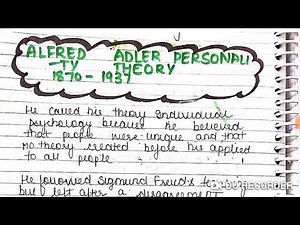 ALFRED ADLER PERSONALI
-TY THEORY
1870 - 1937
He called his theory Individual
psychology because he believed
that people were unique and that
no theory created before his applied
to all people
He followed Sigmund Freud's
but left after a disagreement
DU RECORDER